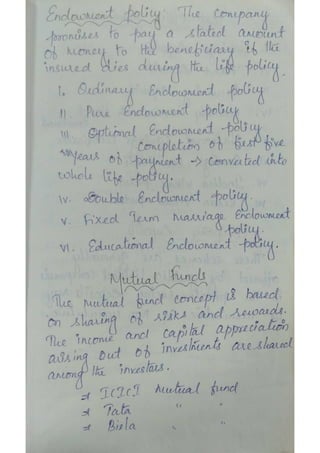 Endowment policy: The company
promises to pay a stated amount
of money to the beneficiary if the
insured dies during the life policy.
i. Ordinary Endowment policy
ii Pure Endowment policy
iii Optional Endowment policy
completion of first five
years of payment → converted into
whole life policy.
iv. Double Endowment policy.
v. Fixed Term marriage Endowment
policy.
vi. Educational Endowment policy.
Mutual Funds
The mutual fund concept is based
on sharing of risks and rewards.
The income and capital appreciation
arising out of investments are shared
among the investors.
⇒ ICICI mutual fund
⇒ Tata " "
⇒ Birla " "